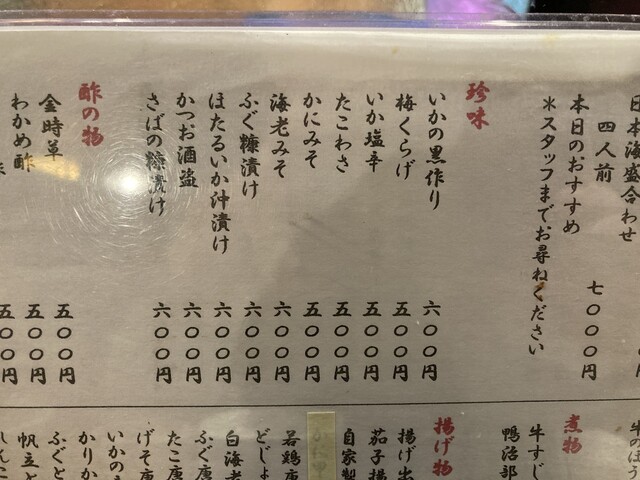 日本海盛合わせ
四人前 七〇〇〇円
本日のおすすめ
＊スタッフまでお尋ねください
珍味
いかの黒作り 六〇〇円
梅くらげ 五〇〇円
いか塩辛 五〇〇円
たこわさ 五〇〇円
かにみそ 五〇〇円
海老みそ 六〇〇円
ふぐ糠漬け 六〇〇円
ほたるいか沖漬け 六〇〇円
かつお酒盗 六〇〇円
さばの糠漬け 六〇〇円
酢の物
金時草 五〇〇円
わかめ酢 五〇〇円
五〇〇円
牛のほう
煮物
牛すじ
鴨治部
揚げ物
揚げ出
茄子揚
自家製
若鶏唐
どじょ
白海老
ふぐ唐
たこ唐
げそ唐
いかの
かりか
ふぐと
帆立と